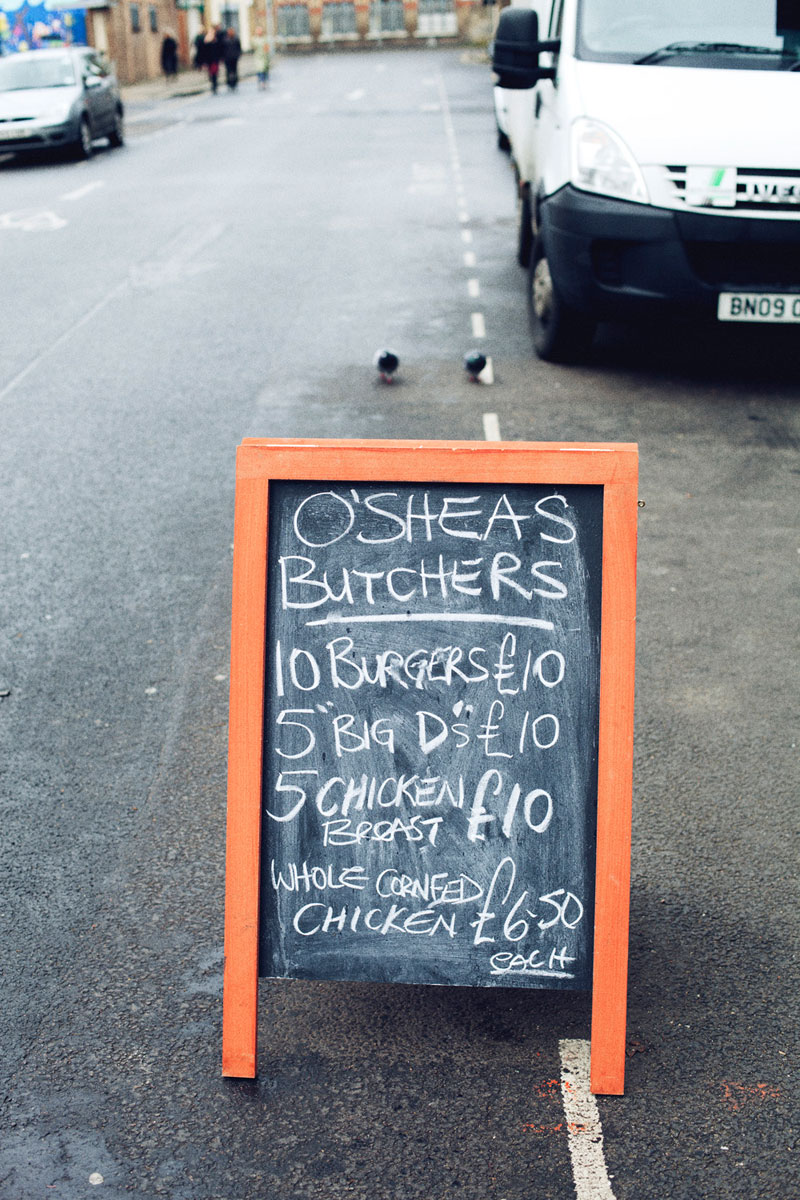 O'SHEAS
BUTCHERS
10 BURGERS £10
5 "BIG D"s £10
5 CHICKEN £10
BREAST
WHOLE CORNFED
CHICKEN £6.50
EACH
BN09